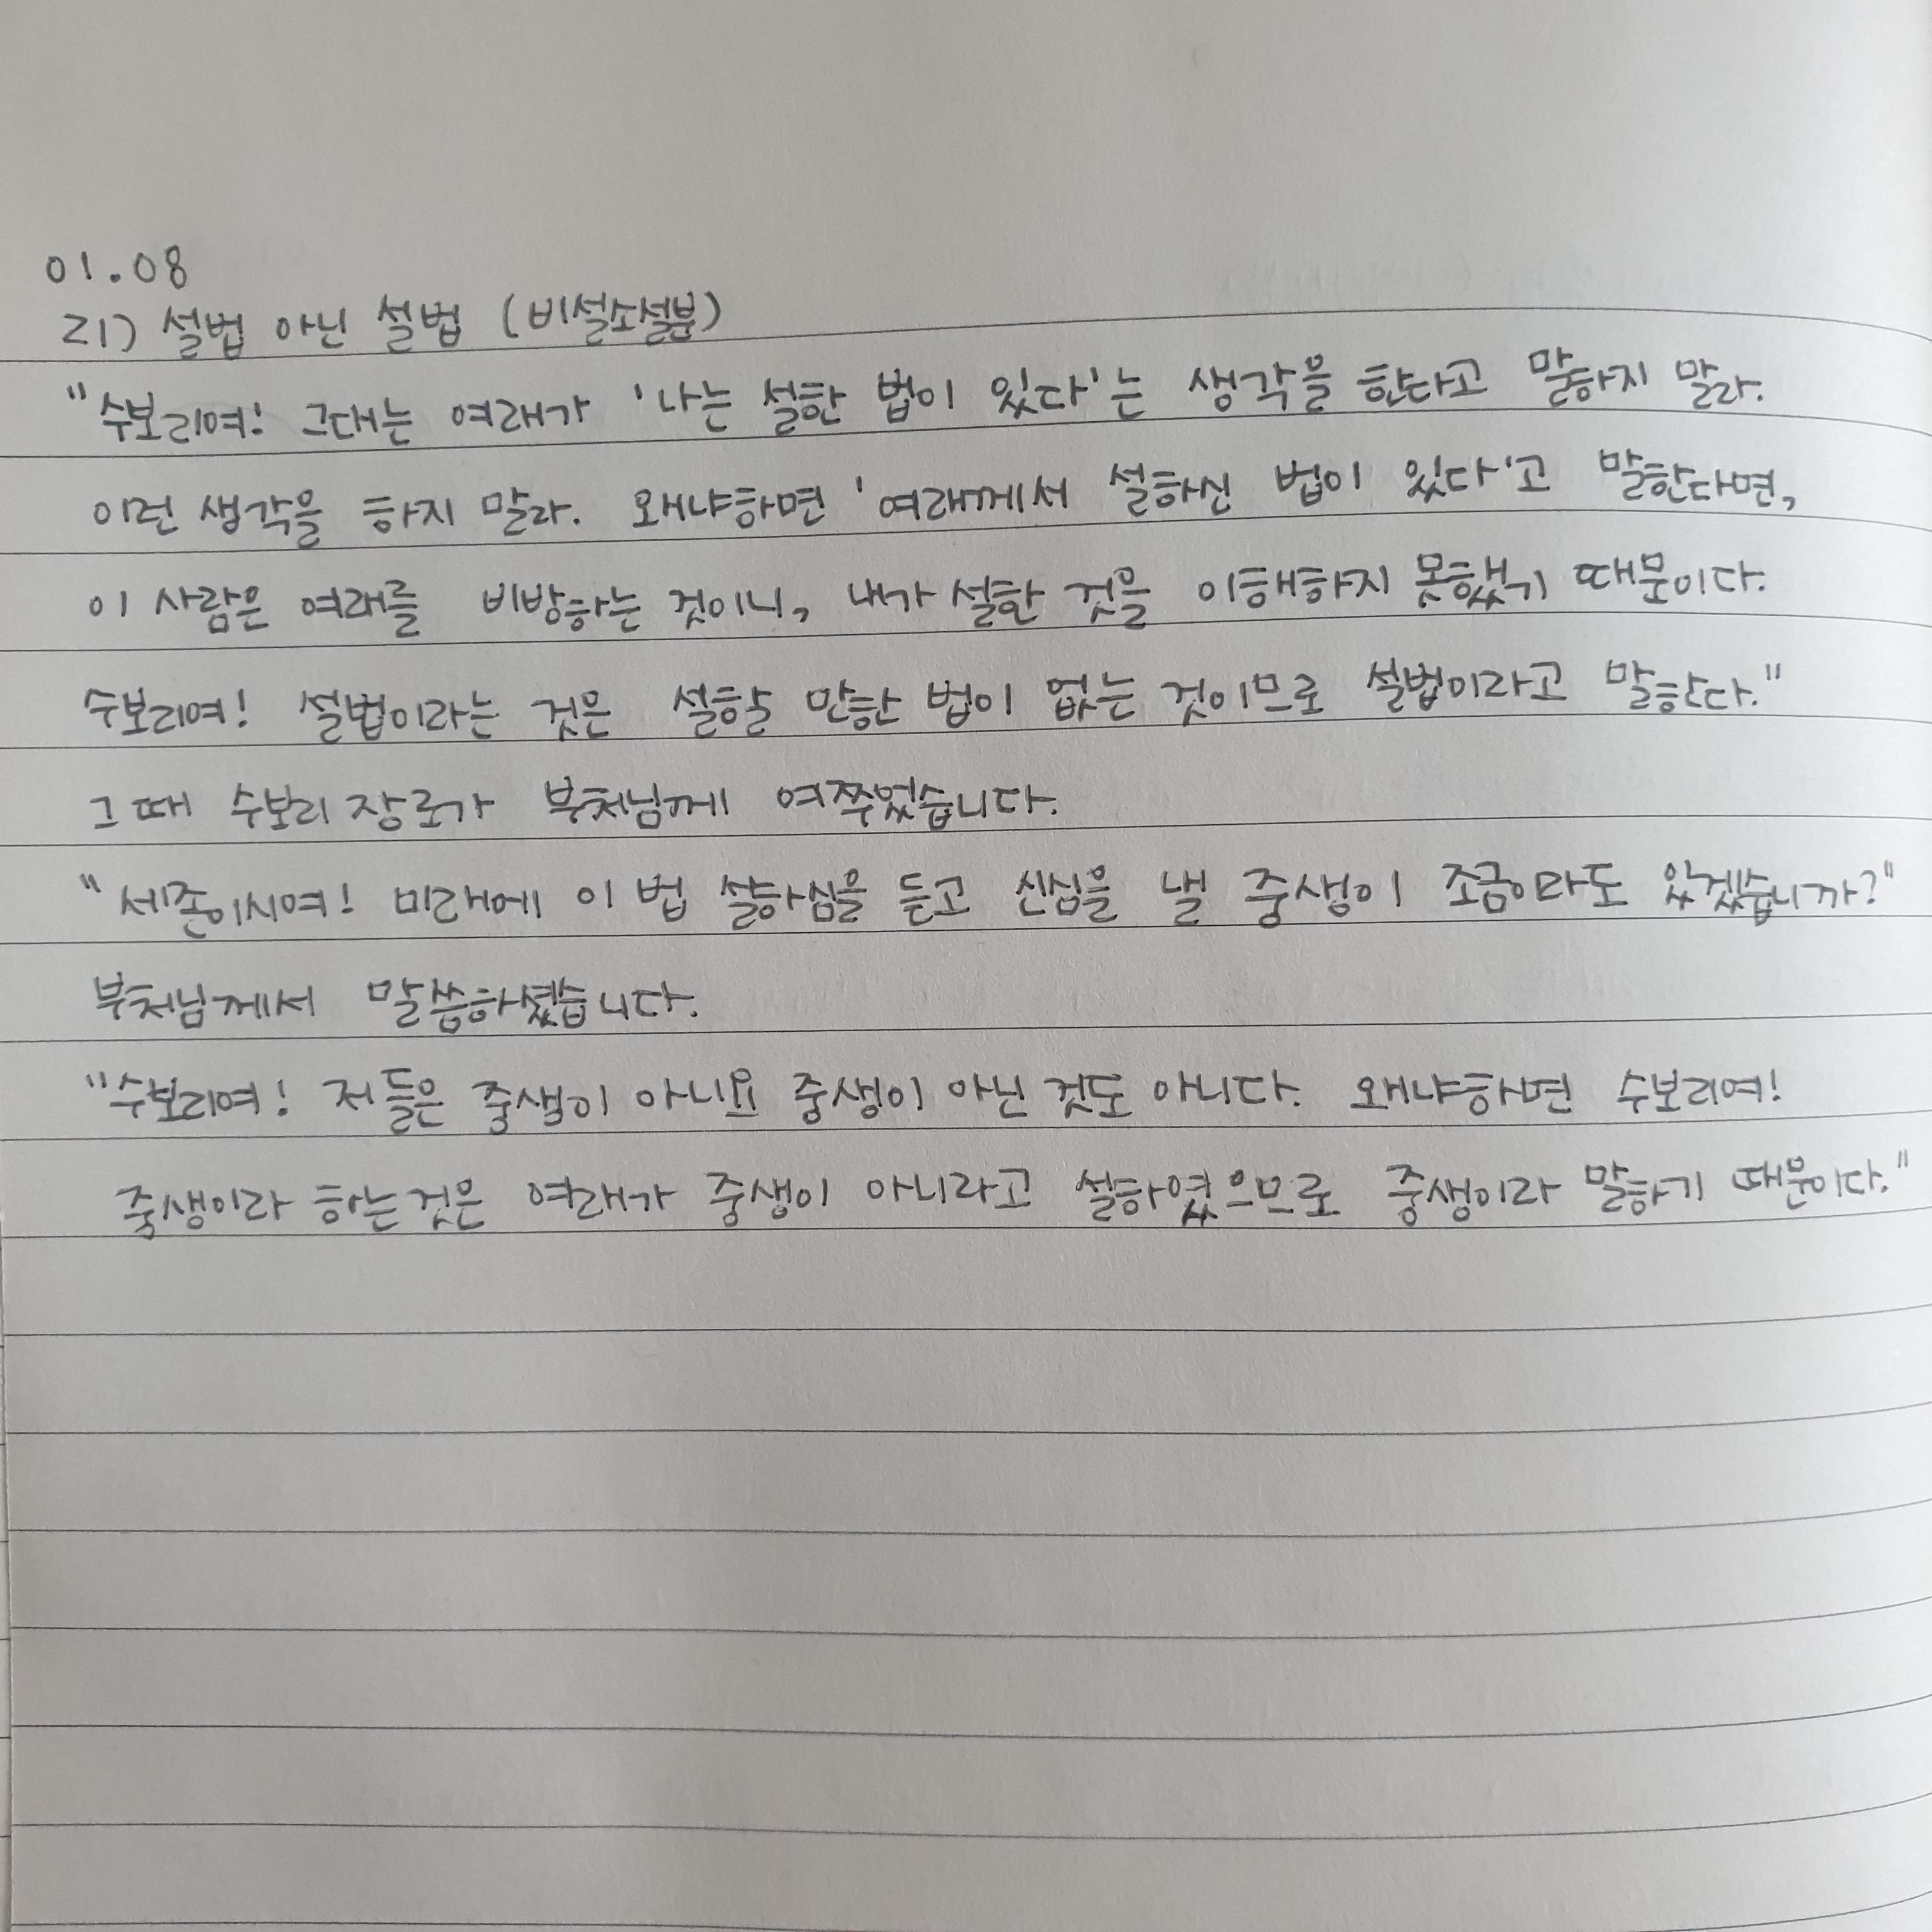 01.08
21) 설법 아닌 설법 (비설소설분)
"수보리여! 그대는 여래가 '나는 설한 법이 있다'는 생각을 한다고 말하지 말라.
이런 생각을 하지 말라. 왜냐하면 '여래께서 설하신 법이 있다'고 말한다면,
이 사람은 여래를 비방하는 것이니, 내가 설한 것을 이해하지 못했기 때문이다.
수보리여! 설법이라는 것은 설할 만한 법이 없는 것이므로 설법이라고 말한다."
그때 수보리 장로가 부처님께 여쭈었습니다.
"세존이시여! 미래에 이 법 설하심을 듣고 신심을 낼 중생이 조금이라도 있겠습니까?"
부처님께서 말씀하셨습니다.
"수보리여! 저들은 중생이 아니요 중생이 아닌 것도 아니다. 왜냐하면 수보리여!
중생이라 하는것은 여래가 중생이 아니라고 설하였으므로 중생이라 말하기 때문이다."